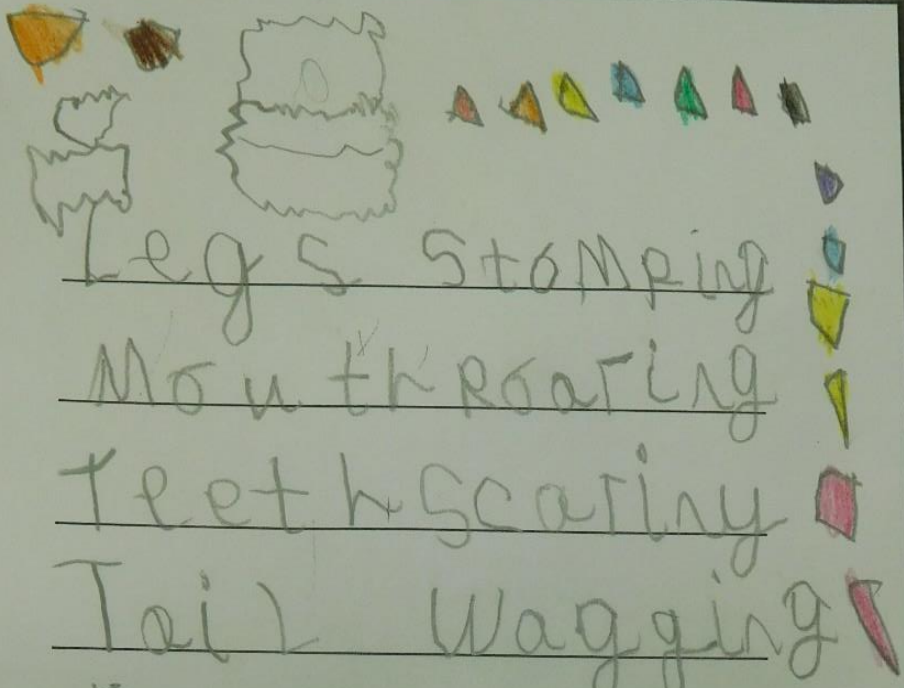 Legs Stomping
Mouth Roaring
Teeth Scariny
Tail Wagging